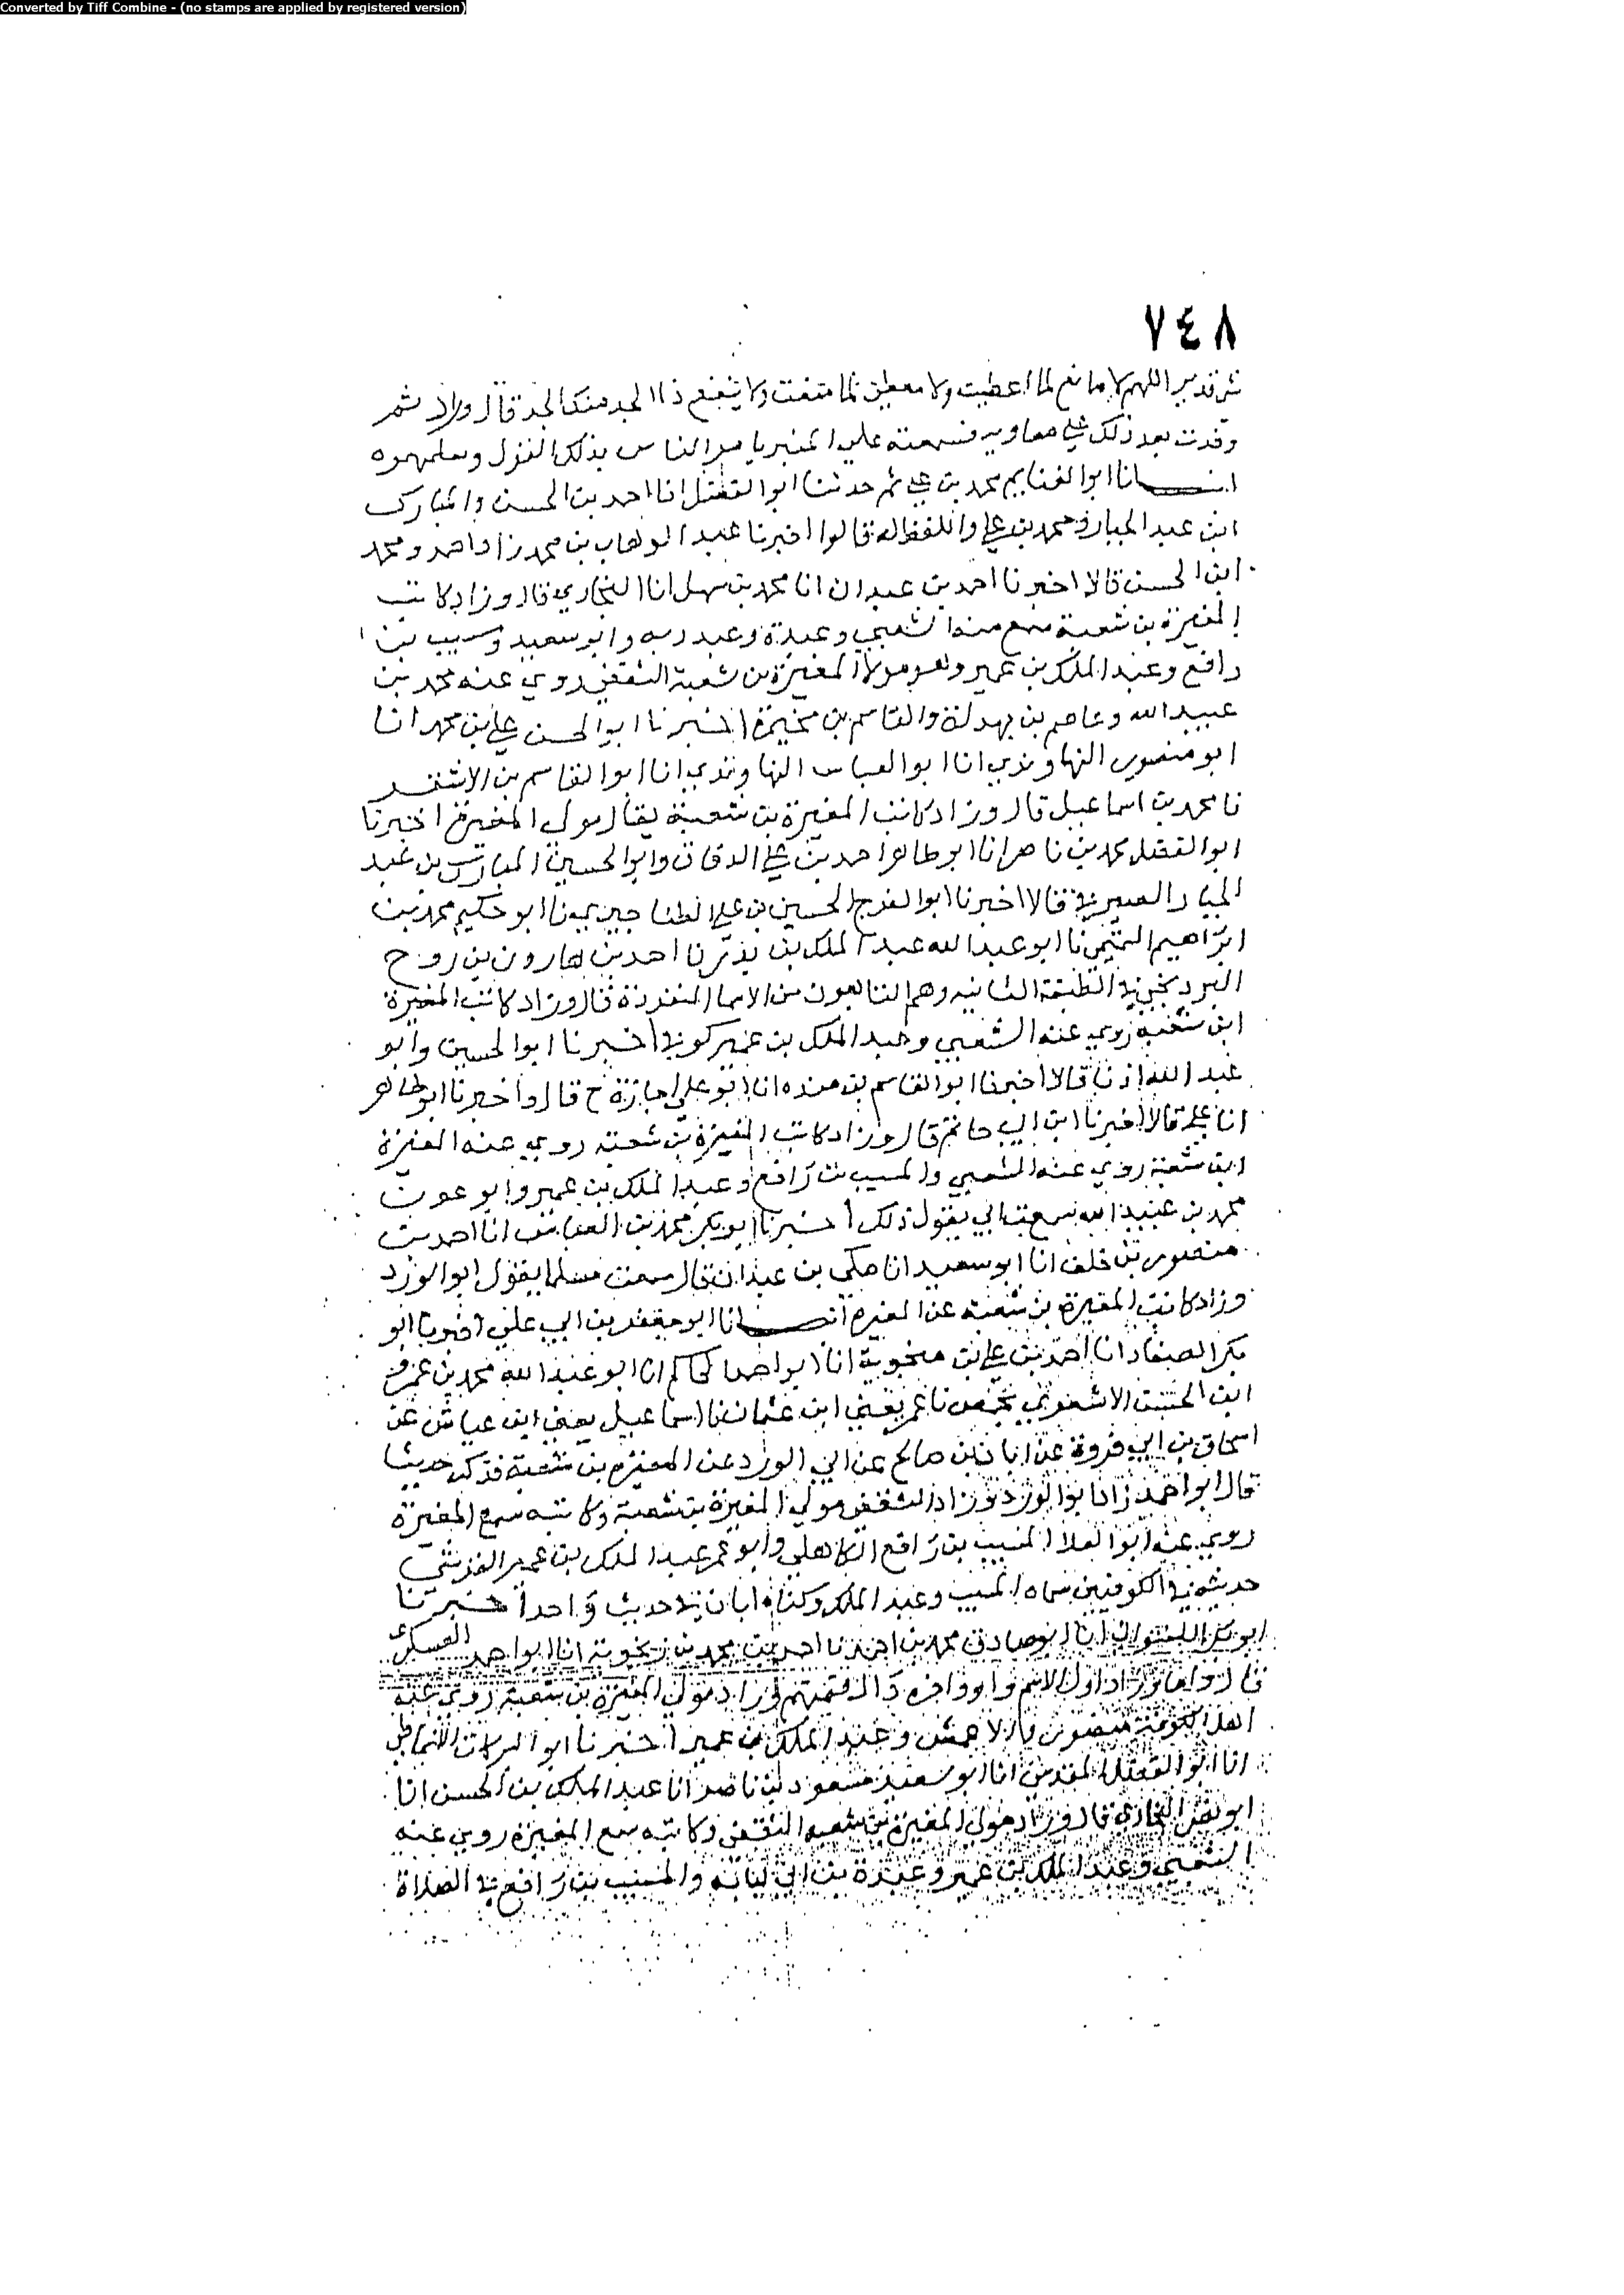 Converted by Tiff Combine - (no stamps are applied by registered version)
٧٤٨
قدير اللهم لا مانع لما اعطيت ولا معطي لما منعت ولا ينفع ذا الجد منك الجد قال وراد ثم
وفدت بعد ذلك على معاويه فسمعته على المنبر يامر الناس بذلك القول ويعلمهموه
انبانا ابو الغنايم محمد بن علي ثم حدثنا ابو الفضل انا احمد بن الحسن والمبارك
ابن عبد الجبار ومحمد بن علي واللفظ له قالوا اخبرنا عبد الوهاب بن محمد زاد احمد ومحمد
ابن الحسن قالا اخبرنا احمد بن عبدان انا محمد بن سهل انا البخاري قال وراد كاتب
المغيرة بن شعبة سمع منه الشعبي وعبدة وعبد ربه وابو سعيد ومسيب بن
رافع وعبد الملك بن عمير وهو مولا المغيرة بن شعبة الثقفي روى عنه محمد بن
عبيد الله وعاصم بن بهدلة والقاسم بن مخيمرة اخبرنا ابو الحسن علي بن محمد انا
ابو منصور النهاوندي انا ابو العباس النهاوندي انا ابو القاسم بن الاشقر
نا محمد بن اسماعيل قال وراد كاتب المغيرة بن شعبة يقال مولى المغيرة اخبرنا
ابو الفضل محمد بن ناصر انا ابو طاهر احمد بن علي الدقاق وابو الحسين المبارك بن عبد
الجبار الصيرفي قالا اخبرنا ابو الفرج الحسين بن علي الطناجيري نا ابو حكيم محمد بن
ابراهيم التميمي نا ابو عبد الله عبد الملك بن بدر نا احمد بن هارون بن روح
البرديجي في الطبقة الثانيه وهم التابعون من الاسما المنفردة قال وراد كاتب المغيرة
ابن شعبه روى عنه الشعبي وعبد الملك بن عمير كوفي اخبرنا ابو الحسين وابو
عبد الله اذنا قالا اخبرنا ابو القاسم بن منده انا ابو علي اجازة ح قال واخبرنا ابو طاهر
انا علي قالا اخبرنا ابن ابي حاتم قال وراد كاتب المغيرة بن شعبة روى عنه المغيرة
ابن شعبة روى عنه الشعبي والمسيب بن رافع وعبد الملك بن عمير وابو عون
محمد بن عبيد الله سمعت ابي يقول ذلك اخبرنا ابو بكر محمد بن العباس انا احمد بن
منصور بن خلف انا ابو سعيد انا مكي بن عبدان قال سمعت مسلما يقول ابو الورد
وراد كاتب المغيرة بن شعبة عن المغيره انبانا ابو جعفر بن ابي علي اخبرنا ابو
بكر الصفار انا احمد بن علي بن منجوية انا ابو احمد الحاكم انا ابو عبد الله محمد بن عمرو
ابن الحسن الاشعري بحمص نا عمر يعني ابن عثمان نا اسماعيل يعني ابن عياش عن
اسحاق بن ابي فروة عن ابان بن صالح عن ابي الورد عن المغيره بن شعبة فذكر حديثا
قال ابو احمد ابو الورد وراد الثقفي مولى المغيرة بن شعبة وكاتبه سمع المغيرة
روى عنه ابو العلا المسيب بن رافع الكاهلي وابو عمر عبد الملك بن عمير القرشي
حديثه في الكوفيين سماه المسيب وعبد الملك وكناه ابان في حديث واحد اخبرنا
ابو بكر اللفتواني انا ابو صادق محمد بن احمد نا احمد بن محمد بن زنجوية انا ابو احمد العسكري
قال واما وراد اول الاسم واو واخره دال فمنهم وراد مولى المغيرة بن شعبة روى عنه
اهل الكوفة منصور والاعمش وعبد الملك بن عمير اخبرنا ابو البركات الانماطي
انا ابو الفضل المقدسي انا ابو سعيد مسعود بن ناصر انا عبد الملك بن الحسن انا
ابو نصر البخاري قال وراد مولى المغيرة بن شعبه الثقفي وكاتبه سمع المغيرة روى عنه
الشعبي وعبد الملك بن عمير وعبدة بن ابي لبابه والمسيب بن رافع في الصلاة